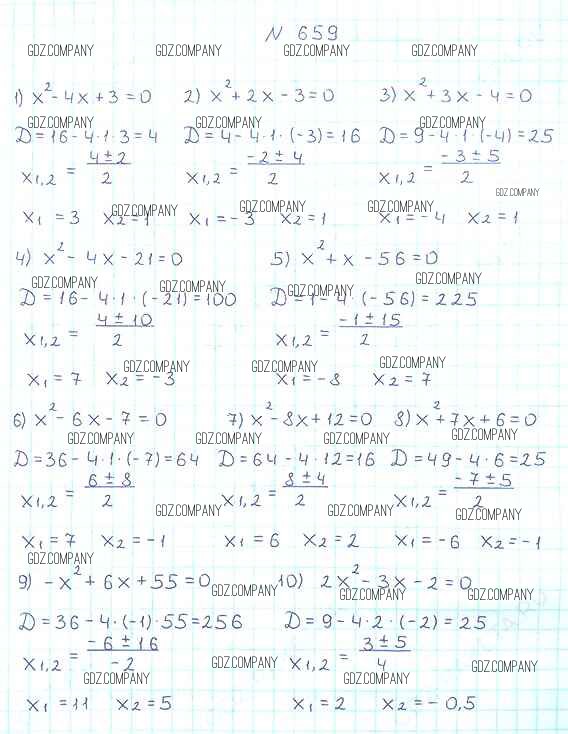 N 659
GDZ.COMPANY GDZ.COMPANY GDZ.COMPANY GDZ.COMPANY
1) x²- 4x + 3 = 0 2) x²+ 2x - 3 = 0 3) x²+ 3x - 4 = 0
GDZ.COMPANY GDZ.COMPANY GDZ.COMPANY
D = 16 - 4·1·3 = 4 D = 4 - 4·1·(-3) = 16 D = 9 - 4·1·(-4) = 25
x1,2 = (4 ± 2)/2 x1,2 = (-2 ± 4)/2 x1,2 = (-3 ± 5)/2
GDZ.COMPANY
GDZ.COMPANY GDZ.COMPANY GDZ.COMPANY
x1 = 3 x2 = 1 x1 = -3 x2 = 1 x1 = -4 x2 = 1
4) x²- 4x - 21 = 0 5) x²+ x - 56 = 0
GDZ.COMPANY GDZ.COMPANY GDZ.COMPANY GDZ.COMPANY
D = 16 - 4·1·(-21) = 100 D = 1 - 4·(-56) = 225
x1,2 = (4 ± 10)/2 x1,2 = (-1 ± 15)/2
GDZ.COMPANY GDZ.COMPANY GDZ.COMPANY
x1 = 7 x2 = -3 x1 = -8 x2 = 7
6) x²- 6x - 7 = 0 7) x²- 8x + 12 = 0 8) x²+ 7x + 6 = 0
GDZ.COMPANY GDZ.COMPANY GDZ.COMPANY GDZ.COMPANY
D = 36 - 4·1·(-7) = 64 D = 64 - 4·12 = 16 D = 49 - 4·6 = 25
x1,2 = (6 ± 8)/2 x1,2 = (8 ± 4)/2 x1,2 = (-7 ± 5)/2
GDZ.COMPANY GDZ.COMPANY GDZ.COMPANY
x1 = 7 x2 = -1 x1 = 6 x2 = 2 x1 = -6 x2 = -1
GDZ.COMPANY
9) -x²+ 6x + 55 = 0 10) 2x²- 3x - 2 = 0
GDZ.COMPANY GDZ.COMPANY GDZ.COMPANY
D = 36 - 4·(-1)·55 = 256 D = 9 - 4·2·(-2) = 25
x1,2 = (-6 ± 16)/-2 x1,2 = (3 ± 5)/4
GDZ.COMPANY GDZ.COMPANY
GDZ.COMPANY GDZ.COMPANY
x1 = 11 x2 = 5 x1 = 2 x2 = -0,5